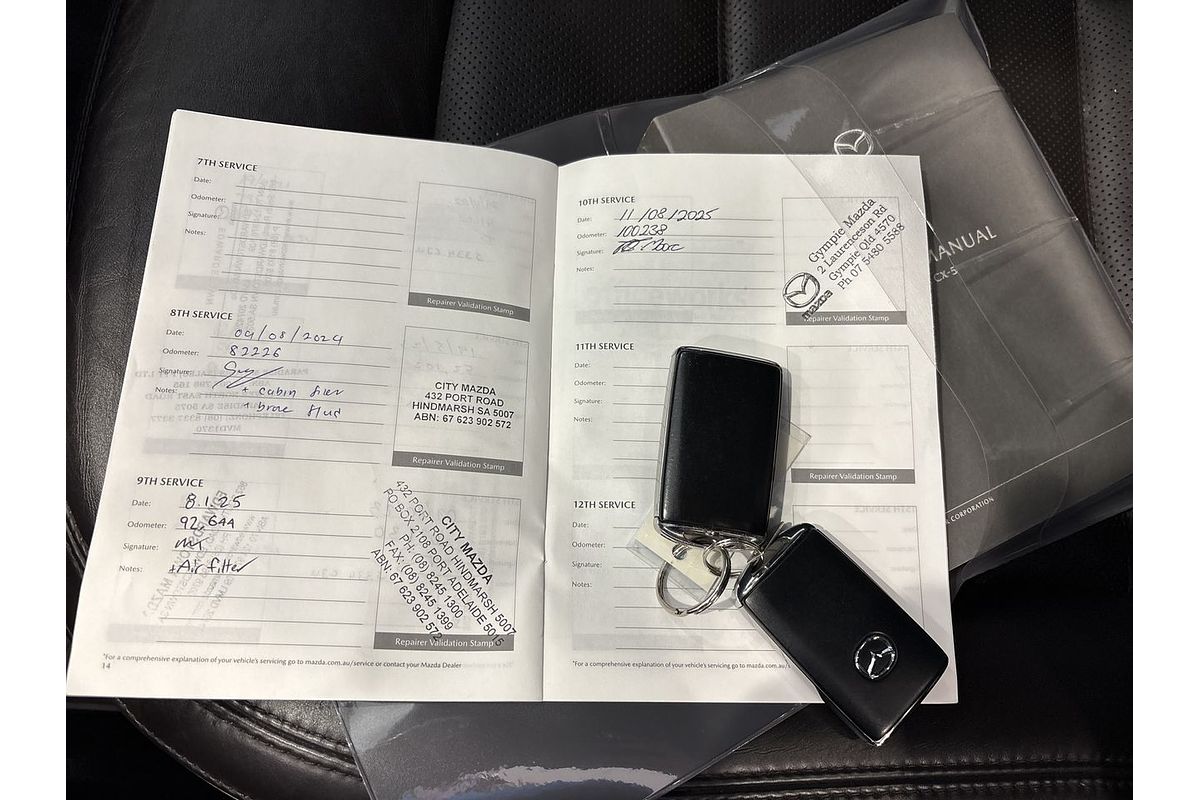 7TH SERVICE
Date:
Odometer:
Signature:
Notes:
Repairer Validation Stamp
8TH SERVICE
Date: 09/08/2024
Odometer: 82226
Signature:
Notes: + cabin
+
CITY MAZDA
432 PORT ROAD
HINDMARSH SA 5007
ABN: 67 623 902 572
Repairer Validation Stamp
9TH SERVICE
Date: 8.1.25
Odometer: 92,644
Signature:
Notes: +Air filter
CITY MAZDA
432 PORT ROAD HINDMARSH 5007
PO BOX 2108 PORT ADELAIDE 5015
PH: (08) 8245 1300
FAX: (08) 8245 1399
ABN: 67 623 902 572
Repairer Validation Stamp
*For a comprehensive explanation of your vehicle's servicing go to mazda.com.au/service or contact your Mazda Dealer
14
10TH SERVICE
Date: 11/08/2025
Odometer: 100238
Signature:
Notes:
Gympie Mazda
2 Laurenceson Rd
Gympie Qld 4570
Ph 07 5480 5588
mazda
Repairer Validation Stamp
11TH SERVICE
Date:
Odometer:
Signature:
Notes:
Repairer Validation Stamp
12TH SERVICE
Date:
Odometer:
Signature:
Notes:
*For a comprehensive explanation of your vehicle's servicing go to mazda.com.au/s
MANUAL
CX-5
CORPORATION